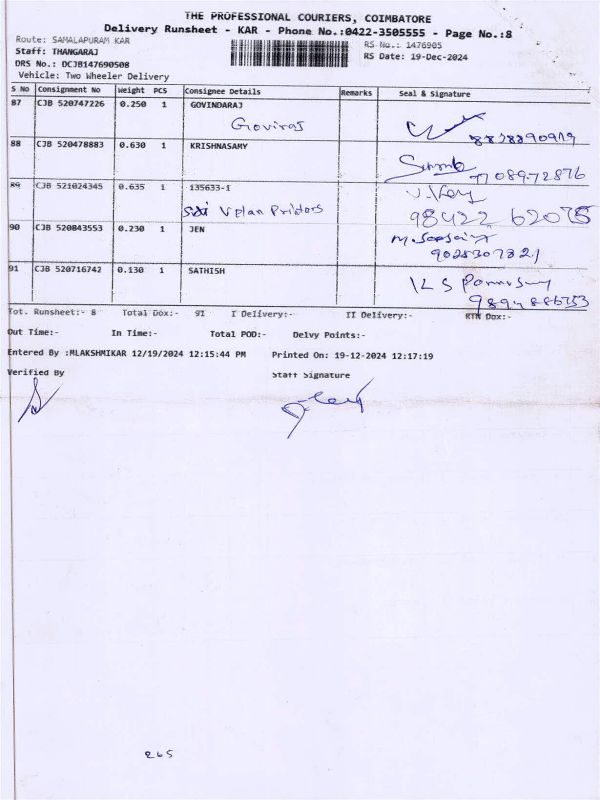 THE PROFESSIONAL COURIERS, COIMBATORE
Delivery Runsheet - KAR - Phone No.:0422-3505555 - Page No.:8
Route: SAMALAPURAM KAR
RS No.: 1476905
Staff: THANGARAJ
RS Date: 19-Dec-2024
DRS No.: DCJB147690508
Vehicle: Two Wheeler Delivery
S No Consignment No Weight PCS Consignee Details Remarks Seal & Signature
87 CJB 520747226 0.250 1 GOVINDARAJ
Goviraj
88 CJB 520478883 0.630 1 KRISHNASAMY
89 CJB 521024345 0.635 1 135633-1
Sri Velan Printors 98422 62075
90 CJB 520843553 0.230 1 JEN
91 CJB 520716742 0.130 1 SATHISH
Tot. Runsheet:- 8 Total Dox:- 91 I Delivery:- II Delivery:- RTN Dox:-
Out Time:- In Time:- Total POD:- Delvy Points:-
Entered By :MLAKSHMIKAR 12/19/2024 12:15:44 PM Printed On: 19-12-2024 12:17:19
Verified By Staff Signature
265